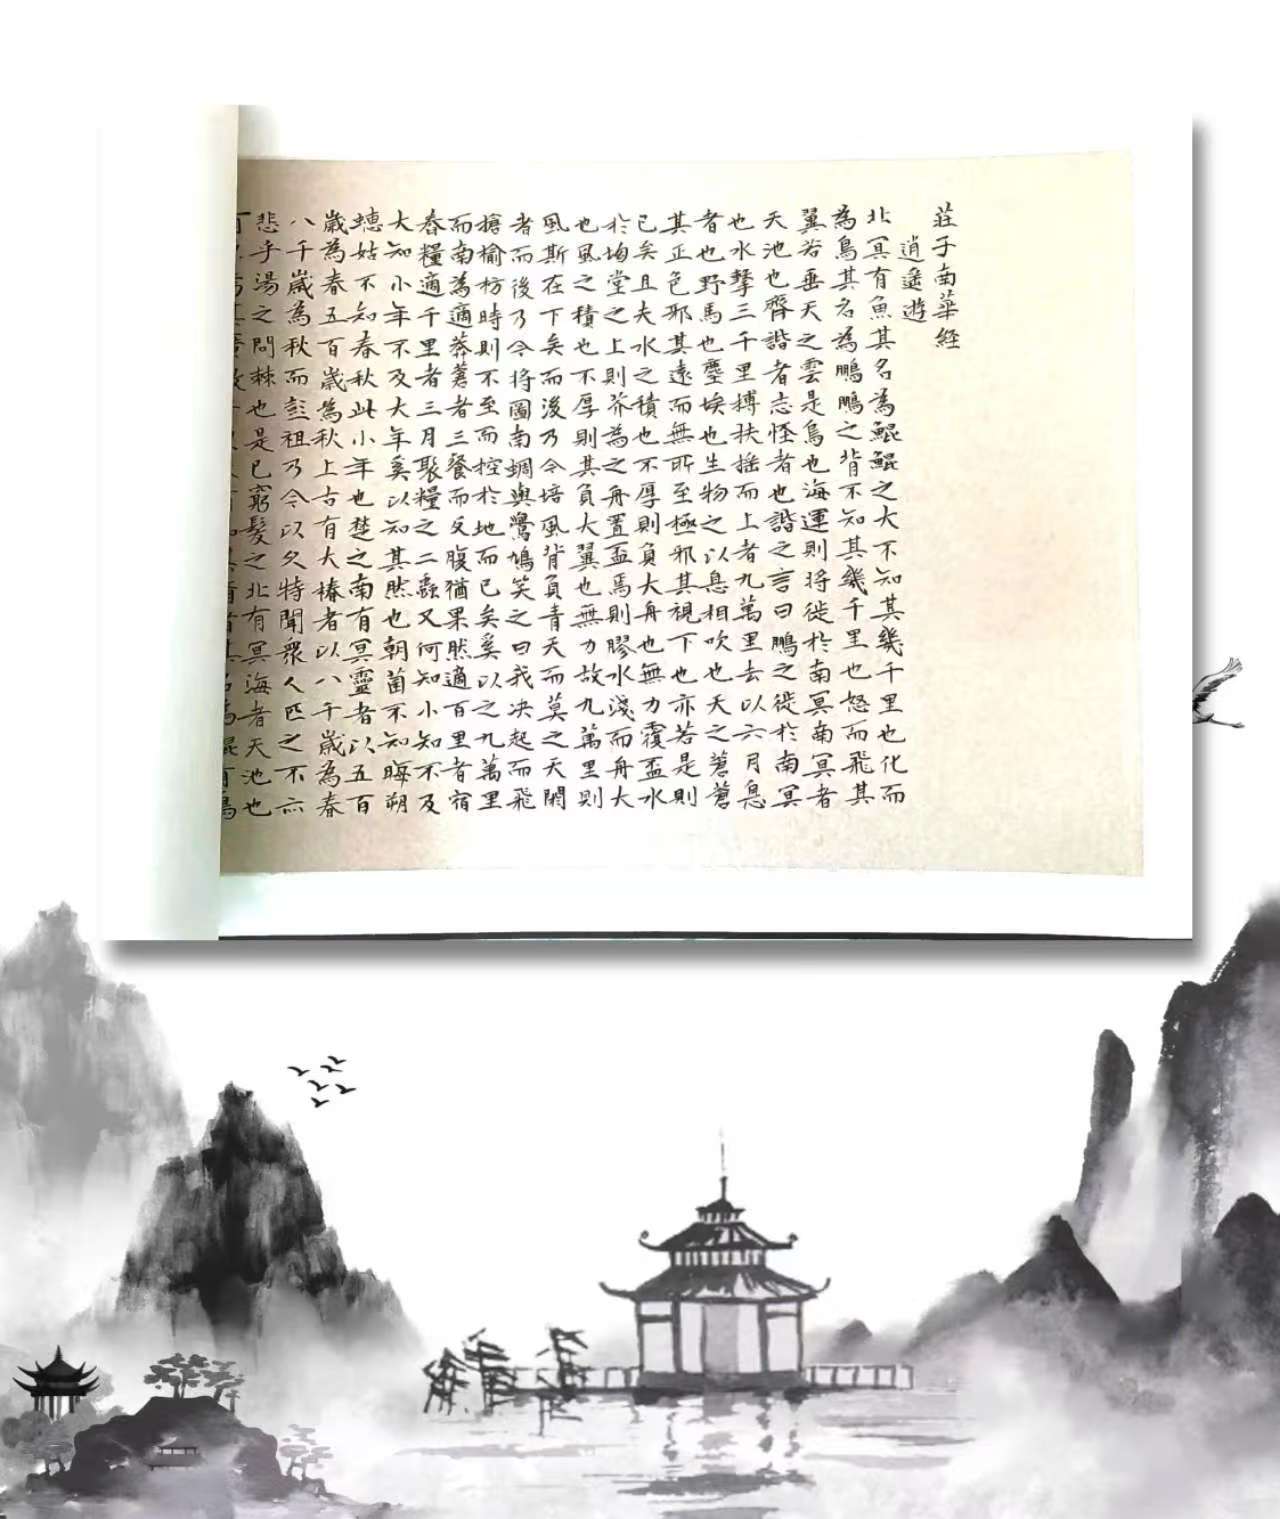 莊子南華經
逍遙遊
北冥有魚其名為鯤鯤之大不知其幾千里也化而
為鳥其名為鵬鵬之背不知其幾千里也怒而飛其
翼若垂天之雲是鳥也海運則將徙於南冥南冥者
天池也齊諧者志怪者也諧之言曰鵬之徙於南冥
也水擊三千里摶扶搖而上者九萬里去以六月息
者也野馬也塵埃也生物之以息相吹也天之蒼蒼
其正色邪其遠而無所至極邪其視下也亦若是則
已矣且夫水之積也不厚則負大舟也無力覆盃水
於坳堂之上則芥為之舟置盃焉則膠水淺而舟大
也風之積也不厚則其負大翼也無力故九萬里則
風斯在下矣而後乃今培風背負青天而莫之夭閼
者而後乃今將圖南蜩與鷽鳩笑之曰我决起而飛
搶榆枋時則不至而控於地而已矣奚以之九萬里
而南為適莽蒼者三餐而反腹猶果然適百里者宿
舂糧適千里者三月聚糧之二蟲又何知小知不及
大知小年不及大年奚以知其然也朝菌不知晦朔
蟪蛄不知春秋此小年也楚之南有冥靈者以五百
歲為春五百歲為秋上古有大椿者以八千歲為春
八千歲為秋而彭祖乃今以久特聞眾人匹之不亦
悲乎湯之問棘也是已窮髮之北有冥海者天池也